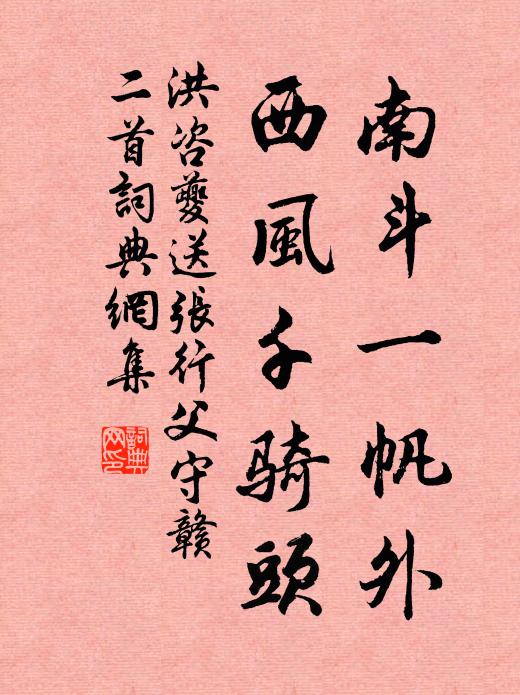 南斗一帆外
西風千騎頭
洪咨夔送張行父守贛
二首詞典網集
詞典網印